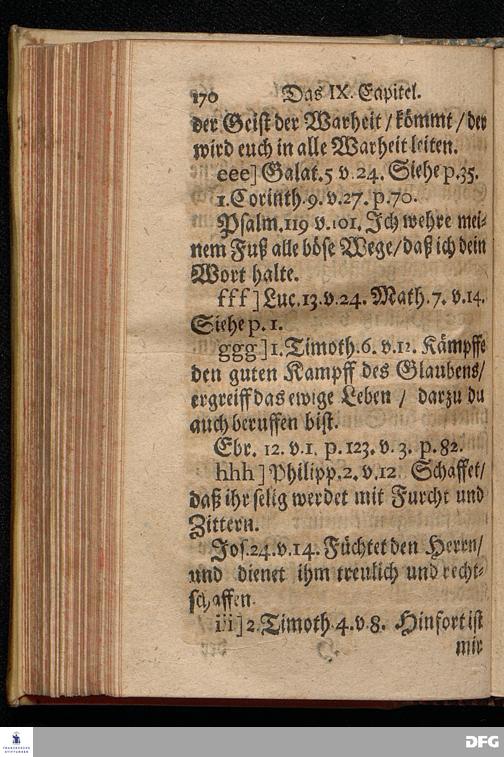 170 Das IX. Capitel.
der Geist der Warheit / kömmt / der
wird euch in alle Warheit leiten.
eee] Galat.5 v.24. Siehe p.35.
1.Corinth.9.v.27. p.70.
Psalm.119 v.101. Ich wehre mei-
nem Fuß alle böse Wege/daß ich dein
Wort halte.
fff] Luc.13.v.24. Math.7. v.14.
Siehe p.1.
ggg] 1.Timoth.6. v.12. Kämpffe
den guten Kampff des Glaubens/
ergreiff das ewige Leben / darzu du
auch beruffen bist.
Ebr. 12. v.1. p.123. v.3. p.82.
hhh] Philipp.2.v.12. Schaffet/
daß ihr selig werdet mit Furcht und
Zittern.
Jos.24.v.14. Füchtet den Herrn/
und dienet ihm treulich und recht-
schaffen.
iii] 2.Timoth.4.v.8. Hinfort ist
mir
FRANCKESCHE
STIFTUNGEN
DFG